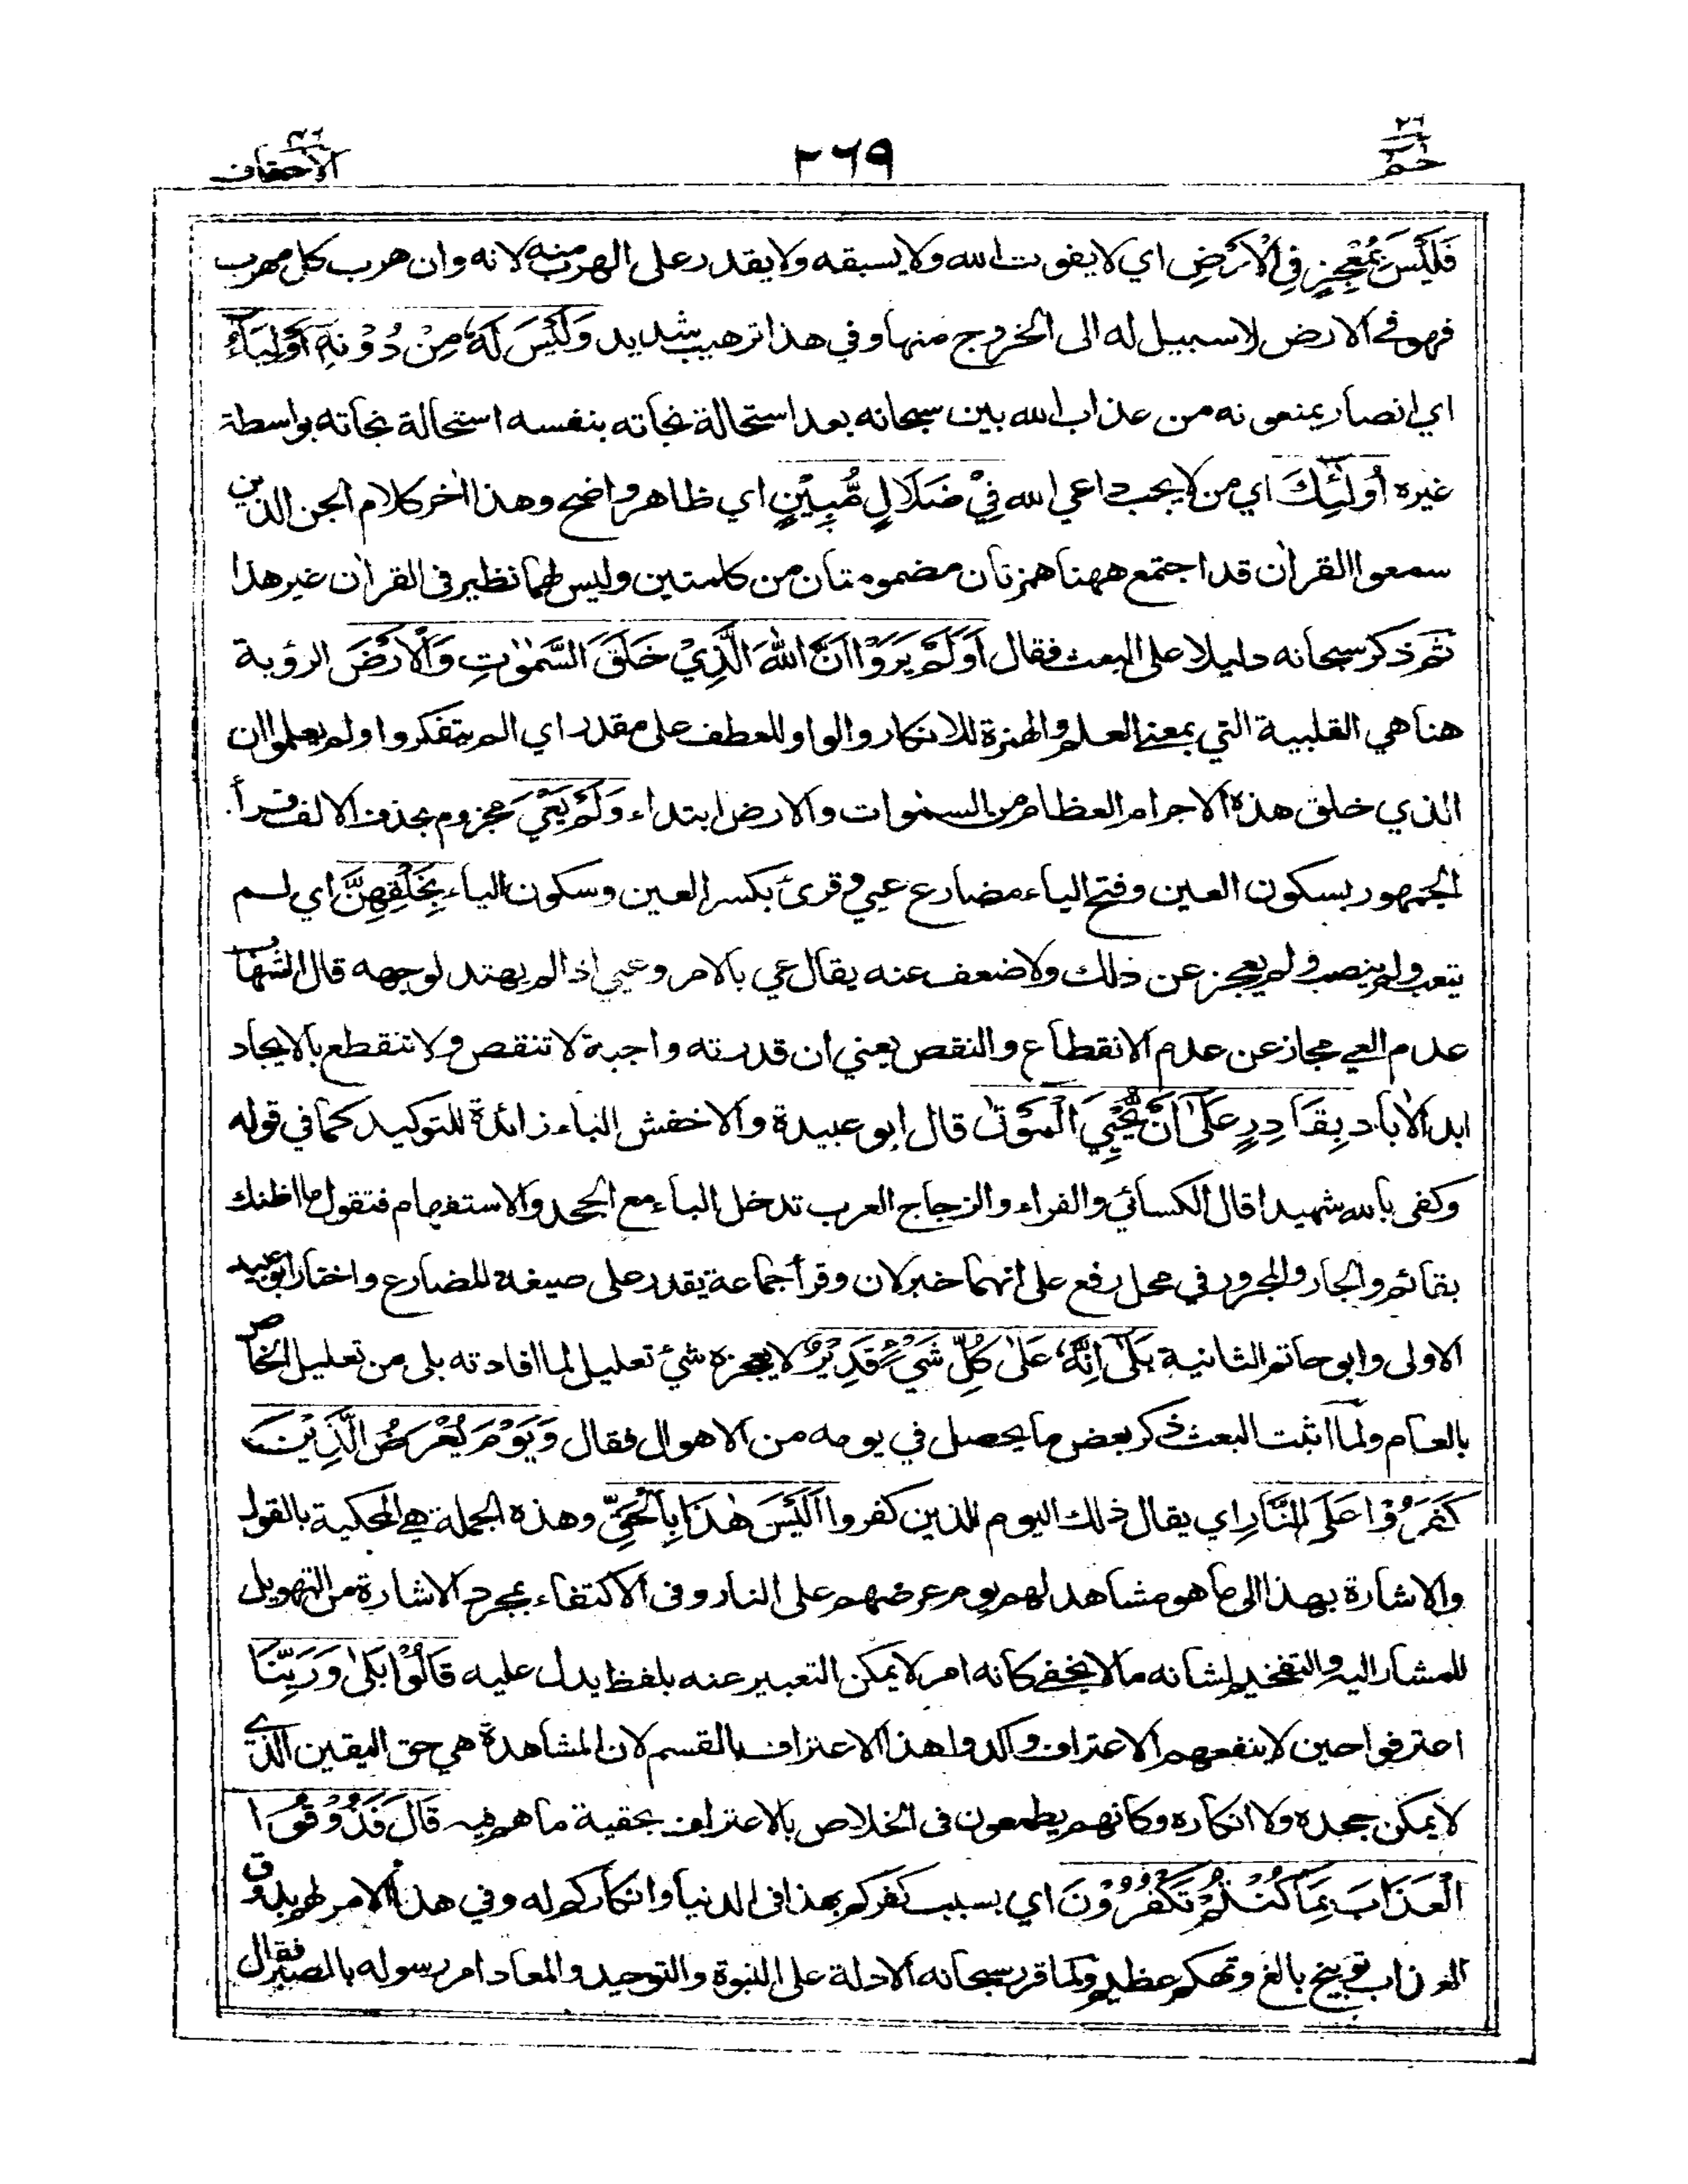 ٢٦
حم
٢٦٩
٤٦
الأحقاف
فَلَيْسَ بِمُعْجِزٍ فِي الْاَرْضِ اي لا يفوت الله ولا يسبقه ولا يقدر على الهرب منه لانه وان هرب كل مهرب
فهو في الارض لا سبيل له الى الخروج منها وفي هذا ترهيب شديد وَلَيْسَ لَهٗ مِنْ دُوْنِهٖ اَوْلِيَآءُ
اي انصار يمنعونه من عذاب الله بين سبحانه بعد استحالة نجاته بنفسه استحالة نجاته بواسطة
غيره اُولٰٓئِكَ اي من لا يجب داعي الله فِيْ ضَلَالٍ مُّبِيْنٍ اي ظاهر واضح وهذا اٰخر كلام الجن الذين
سمعوا القراٰن قد اجتمع ههنا همزتان مضمومتان من كلمتين وليس لهما نظير في القراٰن غير هذا
ثم ذكر سبحانه دليلا على البعث فقال اَوَلَمْ يَرَوْا اَنَّ اللهَ الَّذِيْ خَلَقَ السَّمٰوٰتِ وَالْاَرْضَ الرؤية
هنا هي القلبية التي بمعنى العلم والهمزة للانكار والواو للعطف على مقدر اي الم يتفكروا ولم يعلموا ان
الذي خلق هذه الاجرام العظام من السمٰوات والارض ابتداء وَلَمْ يَعْيَ مجزوم بحذف الالف قرأ
الجمهور بسكون العين وفتح الياء مضارع عيي وقرئ بكسر العين وسكون الياء بِخَلْقِهِنَّ اي لم
يتعب ولم ينصب ولم يعجز عن ذلك ولا ضعف عنه يقال عي بالامر وعيي اذا لم يهتد لوجهه قال الشهاب
عدم العي مجاز عن عدم الانقطاع والنقص يعني ان قدرته واجبة لا تنقص ولا تنقطع بالايجاد
ابد الاٰباد بِقَادِرٍ عَلٰٓى اَنْ يُّحْيِيَ الْمَوْتٰى قال ابو عبيدة والاخفش الباء زائدة للتوكيد كما في قوله
وكفى بالله شهيدا قال الكسائي والفراء والزجاج العرب تدخل الباء مع الجحد والاستفهام فتقول ما اظنك
بقائم والجار والمجرور في محل رفع على انهما خبر لان وقرأ جماعة يقدر على صيغة المضارع واختار ابو عبيد
الاولى وابو حاتم الثانية بَلٰٓى اِنَّهٗ عَلٰى كُلِّ شَيْءٍ قَدِيْرٌ لا يعجزه شيء تعليل لما افادته بلى من تعليل الخاص
بالعام ولما اثبت البعث ذكر بعض ما يحصل في يومه من الاهوال فقال وَيَوْمَ يُعْرَضُ الَّذِيْنَ
كَفَرُوْا عَلَى النَّارِ اي يقال ذلك اليوم للذين كفروا اَلَيْسَ هٰذَا بِالْحَقِّ وهذه الجملة هي المحكية بالقول
والاشارة بهذا الى ما هو مشاهد لهم يوم عرضهم على النار وفي الاكتفاء بمجرد الاشارة من التهويل
للمشار اليه والتفخيم لشانه ما لا يخفى كانه امر لا يمكن التعبير عنه بلفظ يدل عليه قَالُوْا بَلٰى وَرَبِّنَا
اعترفوا حين لا ينفعهم الاعتراف واكدوا هذا الاعتراف بالقسم لان المشاهدة هي حق اليقين الذي
لا يمكن جحده ولا انكاره وكانهم يطمعون في الخلاص بالاعتراف بحقية ما هم فيه قَالَ فَذُوْقُوا
الْعَذَابَ بِمَا كُنْتُمْ تَكْفُرُوْنَ اي بسبب كفركم بهذا في الدنيا وانكاركم له وفي هذا الامر لهم بذوق
العذاب توبيخ بالغ وتهكم عظيم ولما قرر سبحانه الادلة على النبوة والتوحيد والمعاد امر رسوله بالصبر فقال